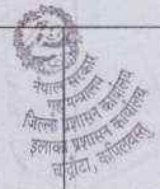 नेपाल सरकार
गृह मन्त्रालय
जिल्ला प्रशासन कार्यालय
इलाका प्रशासन कार्यालय
कपिलवस्तु